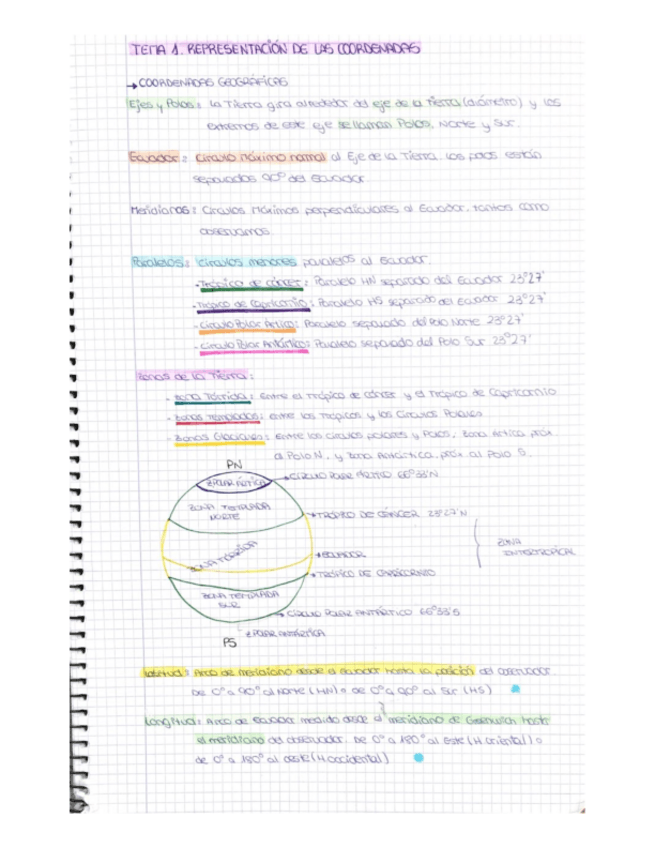 TEMA 1. REPRESENTACIÓN DE LAS COORDENADAS
→ COORDENADAS GEOGRÁFICAS
Ejes y Polos: La Tierra gira alrededor del eje de la Tierra (diámetro) y los
extremos de este eje se llaman Polos, Norte y Sur
Ecuador: Círculo máximo normal al Eje de la Tierra. Los polos están
separados 90° del Ecuador
Meridianos: Círculos máximos perpendiculares al Ecuador, tantos como
observamos.
Paralelos: Círculos menores paralelos al Ecuador
- Trópico de cáncer: Paralelo HN separado del Ecuador 23°27'
- Trópico de Capricornio: Paralelo HS separado del Ecuador 23°27'
- Círculo Polar Ártico: Paralelo separado del Polo Norte 23°27'
- Círculo Polar Antártico: Paralelo separado del Polo Sur 23°27'
Zonas de la Tierra:
- Zona Tórrida: Entre el Trópico de cáncer y el Trópico de Capricornio
- Zonas Templadas: entre los Trópicos y los Círculos Polares
- Zonas Glaciares: Entre los círculos polares y Polos, Zona Ártica, próx.
a Polo N, y Zona Antártica, próx al Polo S.
PN
CÍRCULO POLAR ÁRTICO 66°33'N
Z POLAR ÁRTICA
ZONA TEMPLADA
NORTE
TRÓPICO DE CÁNCER 23°27'N
ZONA TÓRRIDA
ECUADOR
ZONA
INTERTROPICAL
TRÓPICO DE CAPRICORNIO
ZONA TEMPLADA
SUR
CÍRCULO POLAR ANTÁRTICO 66°33'S
Z POLAR ANTÁRTICA
PS
Latitud: Arco de meridiano desde el Ecuador hasta la posición del observador.
De 0° a 90° al Norte (HN) o de 0° a 90° al Sur (HS)
Longitud: Arco de Ecuador medido desde el meridiano de Greenwich hasta
el meridiano del observador. De 0° a 180° al Este (H. oriental) o
de 0° a 180° al oeste (H. occidental)